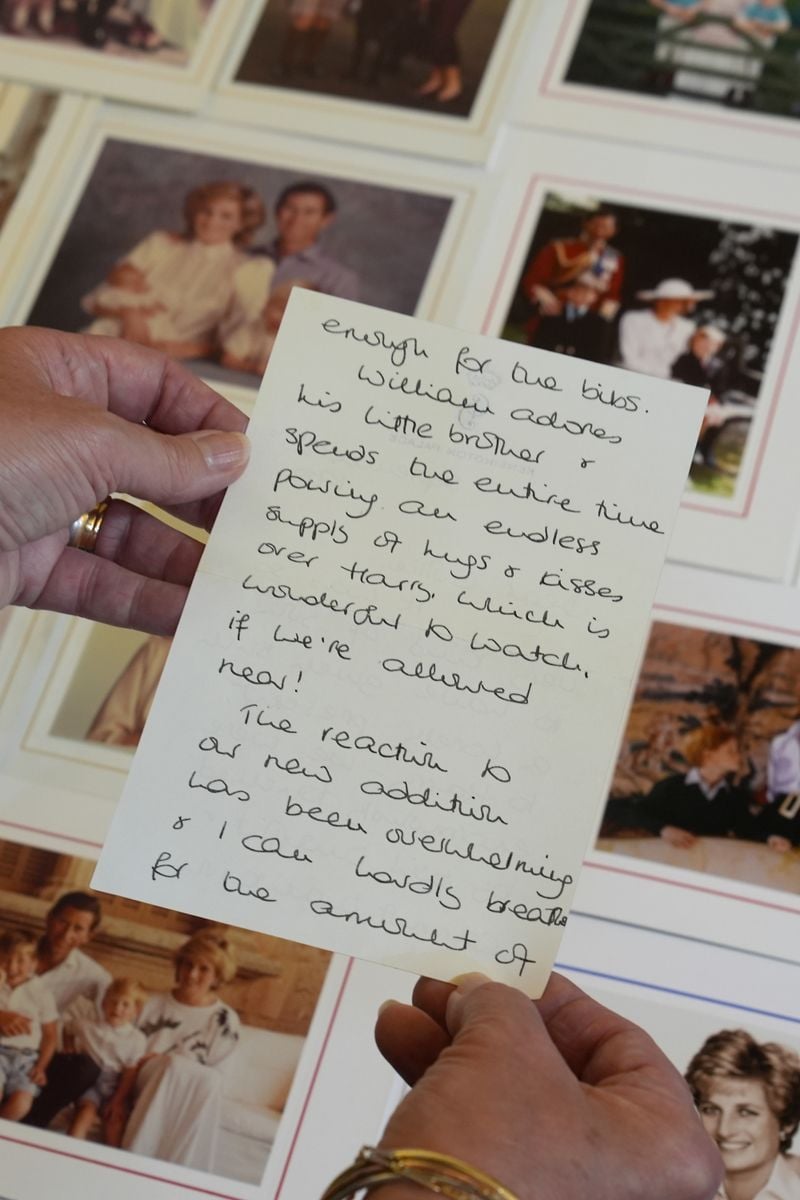 enough for the bibs.
William adores
his little brother &
spends the entire time
pouring an endless
supply of hugs & kisses
over Harry, which is
wonderful to watch,
if we're allowed
near!
The reaction to
our new addition
has been overwhelming
& I can hardly breathe
for the amount of